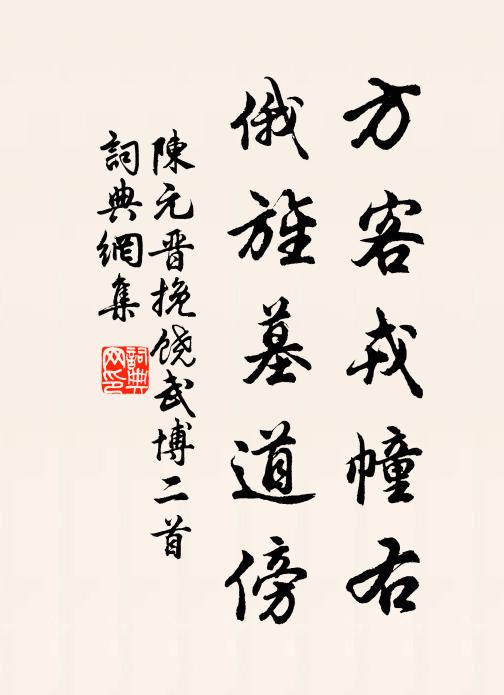 方客戎幢右
俄旌墓道傍
陳元晋挽饶武博二首
詞典網集
詞典网印